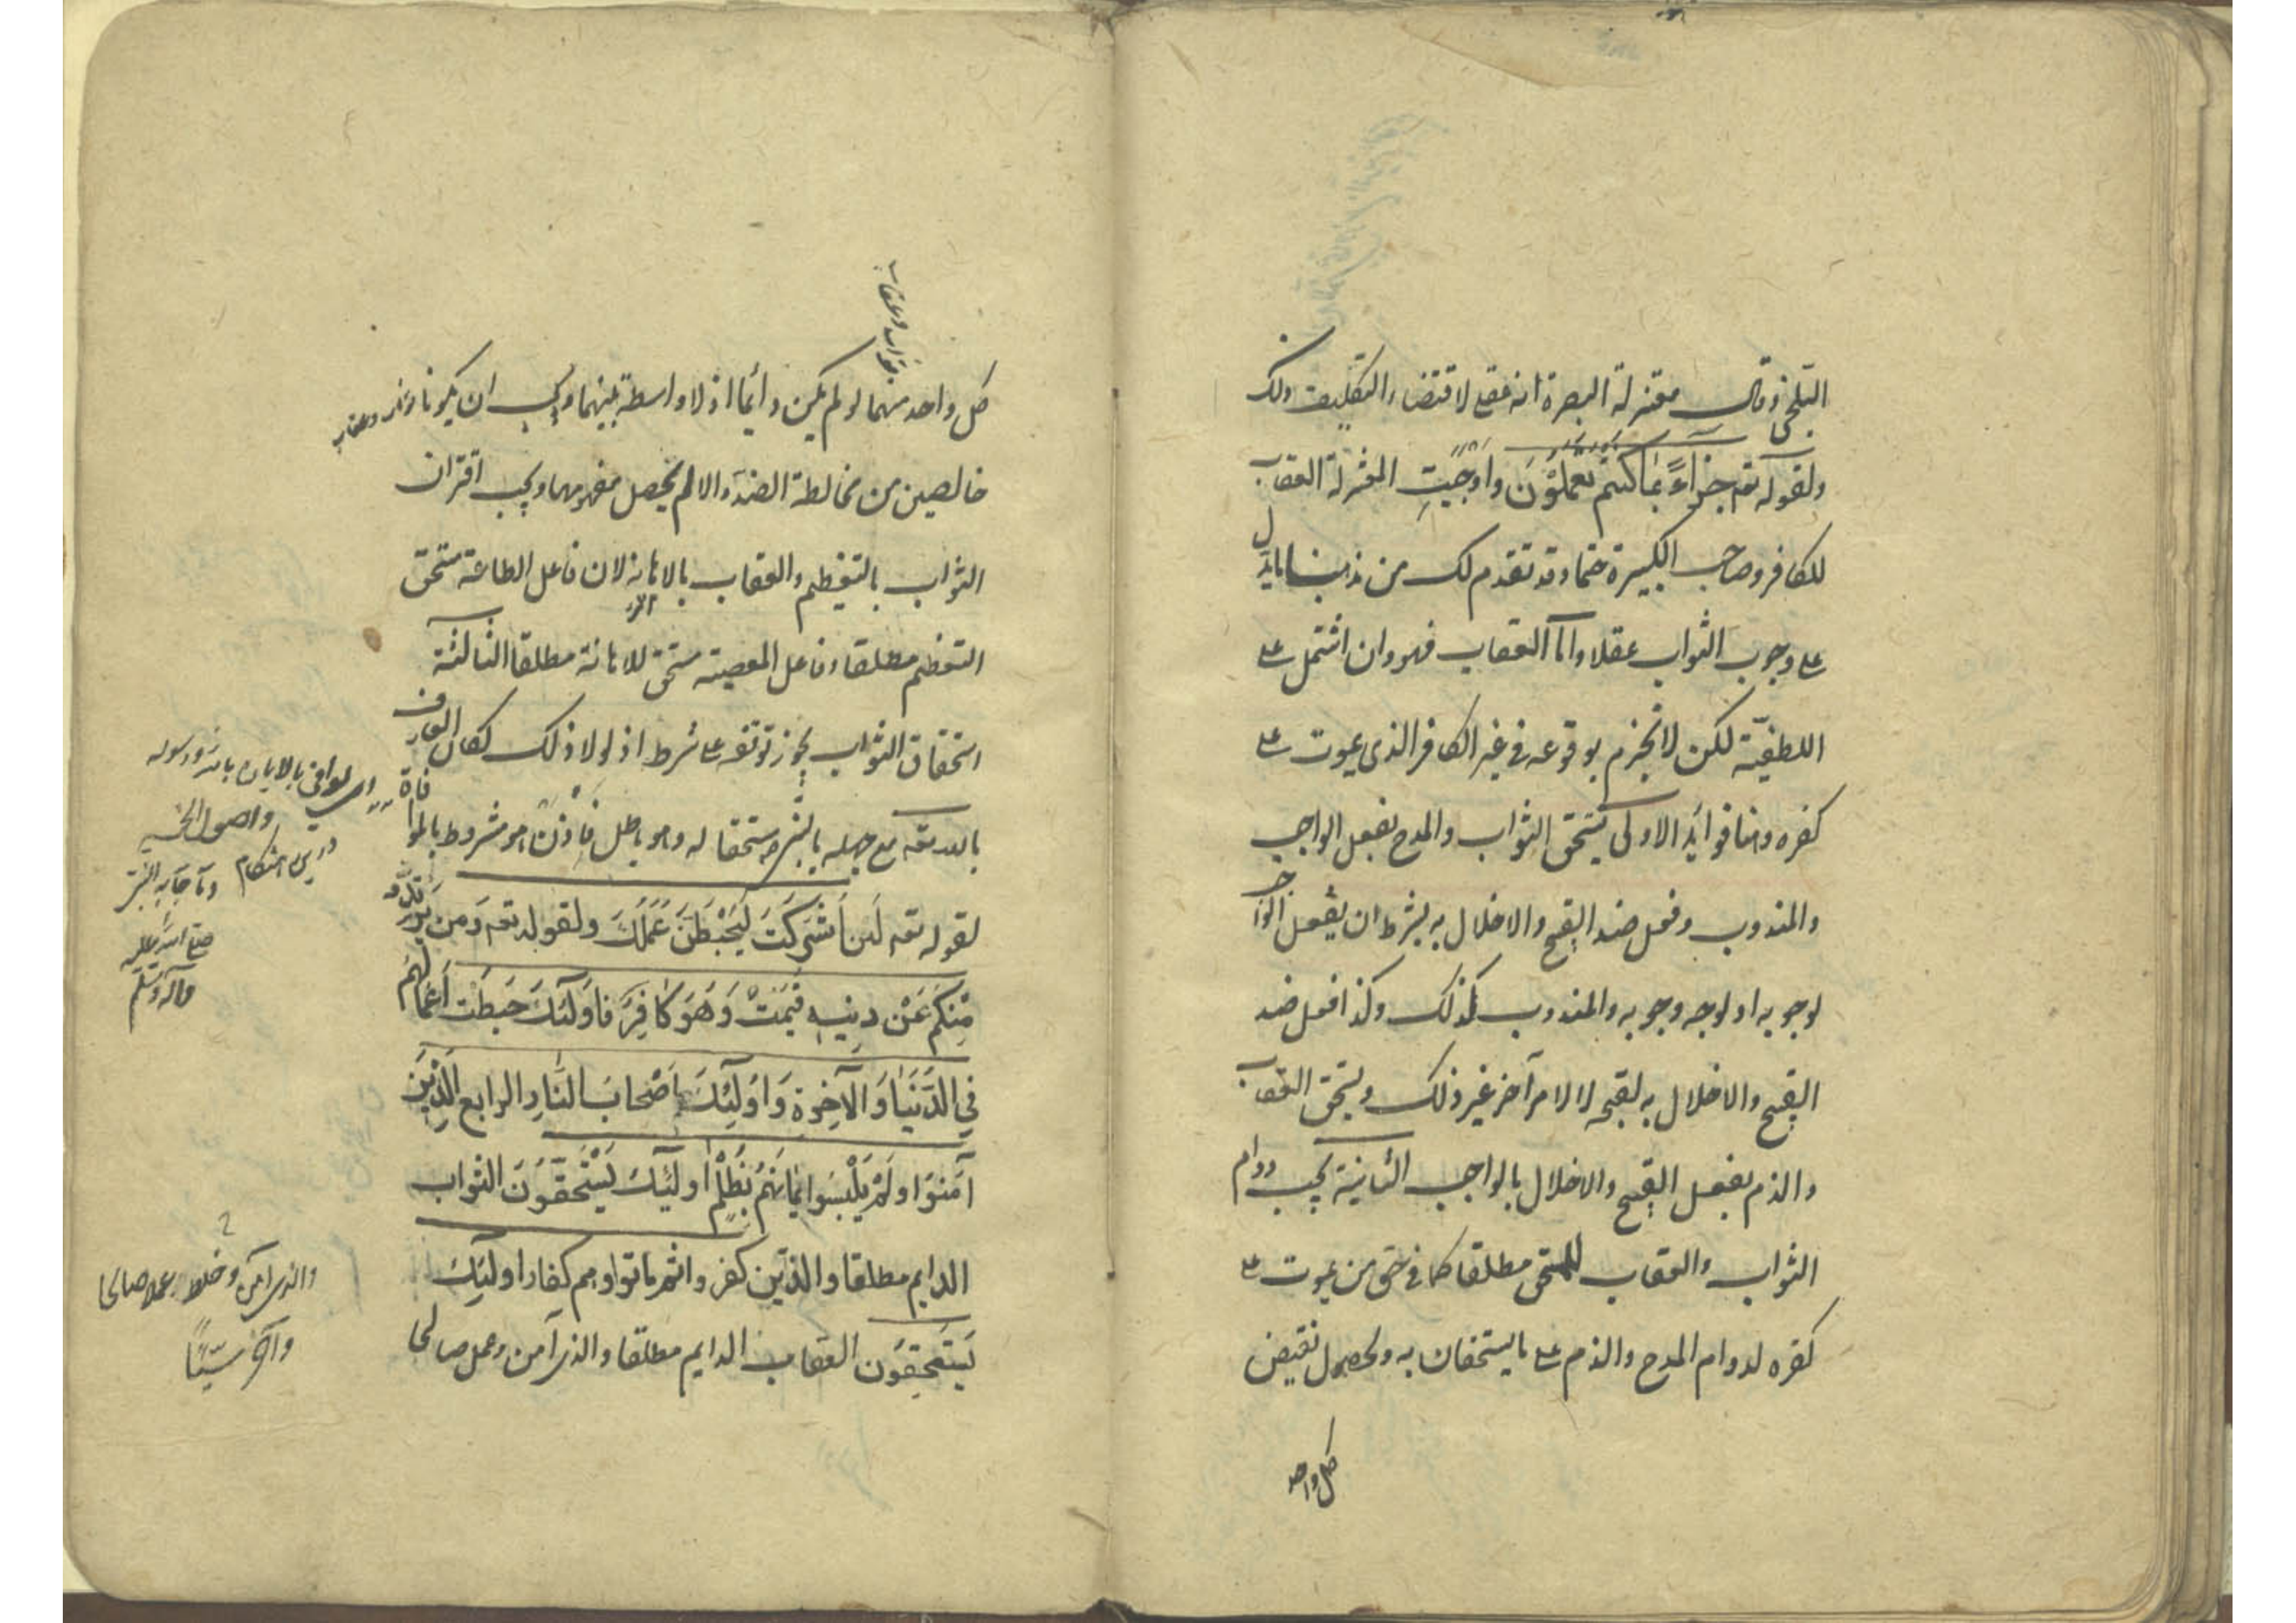 البلخى وقال معتزلة البصرة انه عقلى لاقتضاء التكليف ذلك
ولقوله تعم جَزاءً بِمَا كُنتُمْ تَعمَلُوْنَ واَوْجَبَتِ المعتزلة العقاب
للكافر وصاحب الكبيرة حتما وقد تقدم لك من مذهبنا مايدل
على وجوب الثواب عقلا وامّا العقاب فهو وان اشتمل على
اللطفيّة لكن لا نجزم بوقوعه فى غير الكافر الذى يموت على
كفره وهنا فوايد الاولى يستحق الثواب والمدح بفعل الواجب
والمندوب وفعل ضد القبيح والاخلال به بشرط ان يفعل الواجب
لوجوبه او لوجه وجوبه والمندوب كذلك وكذا فعل ضد
القبيح والاخلال به لقبحه لا لامر آخر غير ذلك ويستحق العقاب
والذم بفعل القبيح والاخلال بالواجب الثانية يجب دوام
الثواب والعقاب للمستحق مطلقا كما فى حق من يموت على
كفره لدوام المدح والذم على مايستحقان به ولحصول نقيض
كل واحد
كل واحد منهما لو لم يكن دائما اذ لا واسطة بينهما ويجب ان يكونا
ثواب وعقاب
خالصين من مخالطة الضد والا لم يحصل مفهومهما ويجب اقتران
الثواب بالتعظيم والعقاب بالاهانة لان فاعل الطاعة مستحق
التعظيم مطلقا وفاعل المعصية مستحق للاهانة مطلقا الثالثة
استحقاق الثواب يجوز توقفه على شرط اذ لولا ذلك لكان العارف
بالله تعه مع جهله بالنبى ص مستحقا له وهو باطل فَاِذَنْ هو مشروط بالموافاة
لقوله تعه لَئن اَشْرَكتَ لَيَحْبَطَنَ عَمَلكَ ولقوله تعم وَمن يَرْتَدّد
مِنكم عَنْ دِينِه فَيَمُتْ وَهُوَ كافِرٌ فاوَلئِكَ حَبِطَت اَعْمالهُم
فِي الدُّنيَا وَالآخِرة وَاوُلئِكَ اَصْحابَ النَّارِ الرابع الَّذِينَ
آمَنوا ولَمْ يَلْبِسوا ايمانَهُمْ بِظُلْمٍ اولئِكَ يَسْتَحقّوُنَ الثواب
الدايم مطلقا والذيَن كفروا ثم ماتوا وهم كفار اولئِكَ
يَستَحِقوُن العقاب الدايم مطلقا والذى آمن وعمل صالحا
اى الموافى بالايمان بالله ورسوله
والاصول الخمسة
وما جاء به النبى
صلى الله عليه
وآله وسلم
والذى آمن وخلط عملا صالحا
وآخر سيّئًا